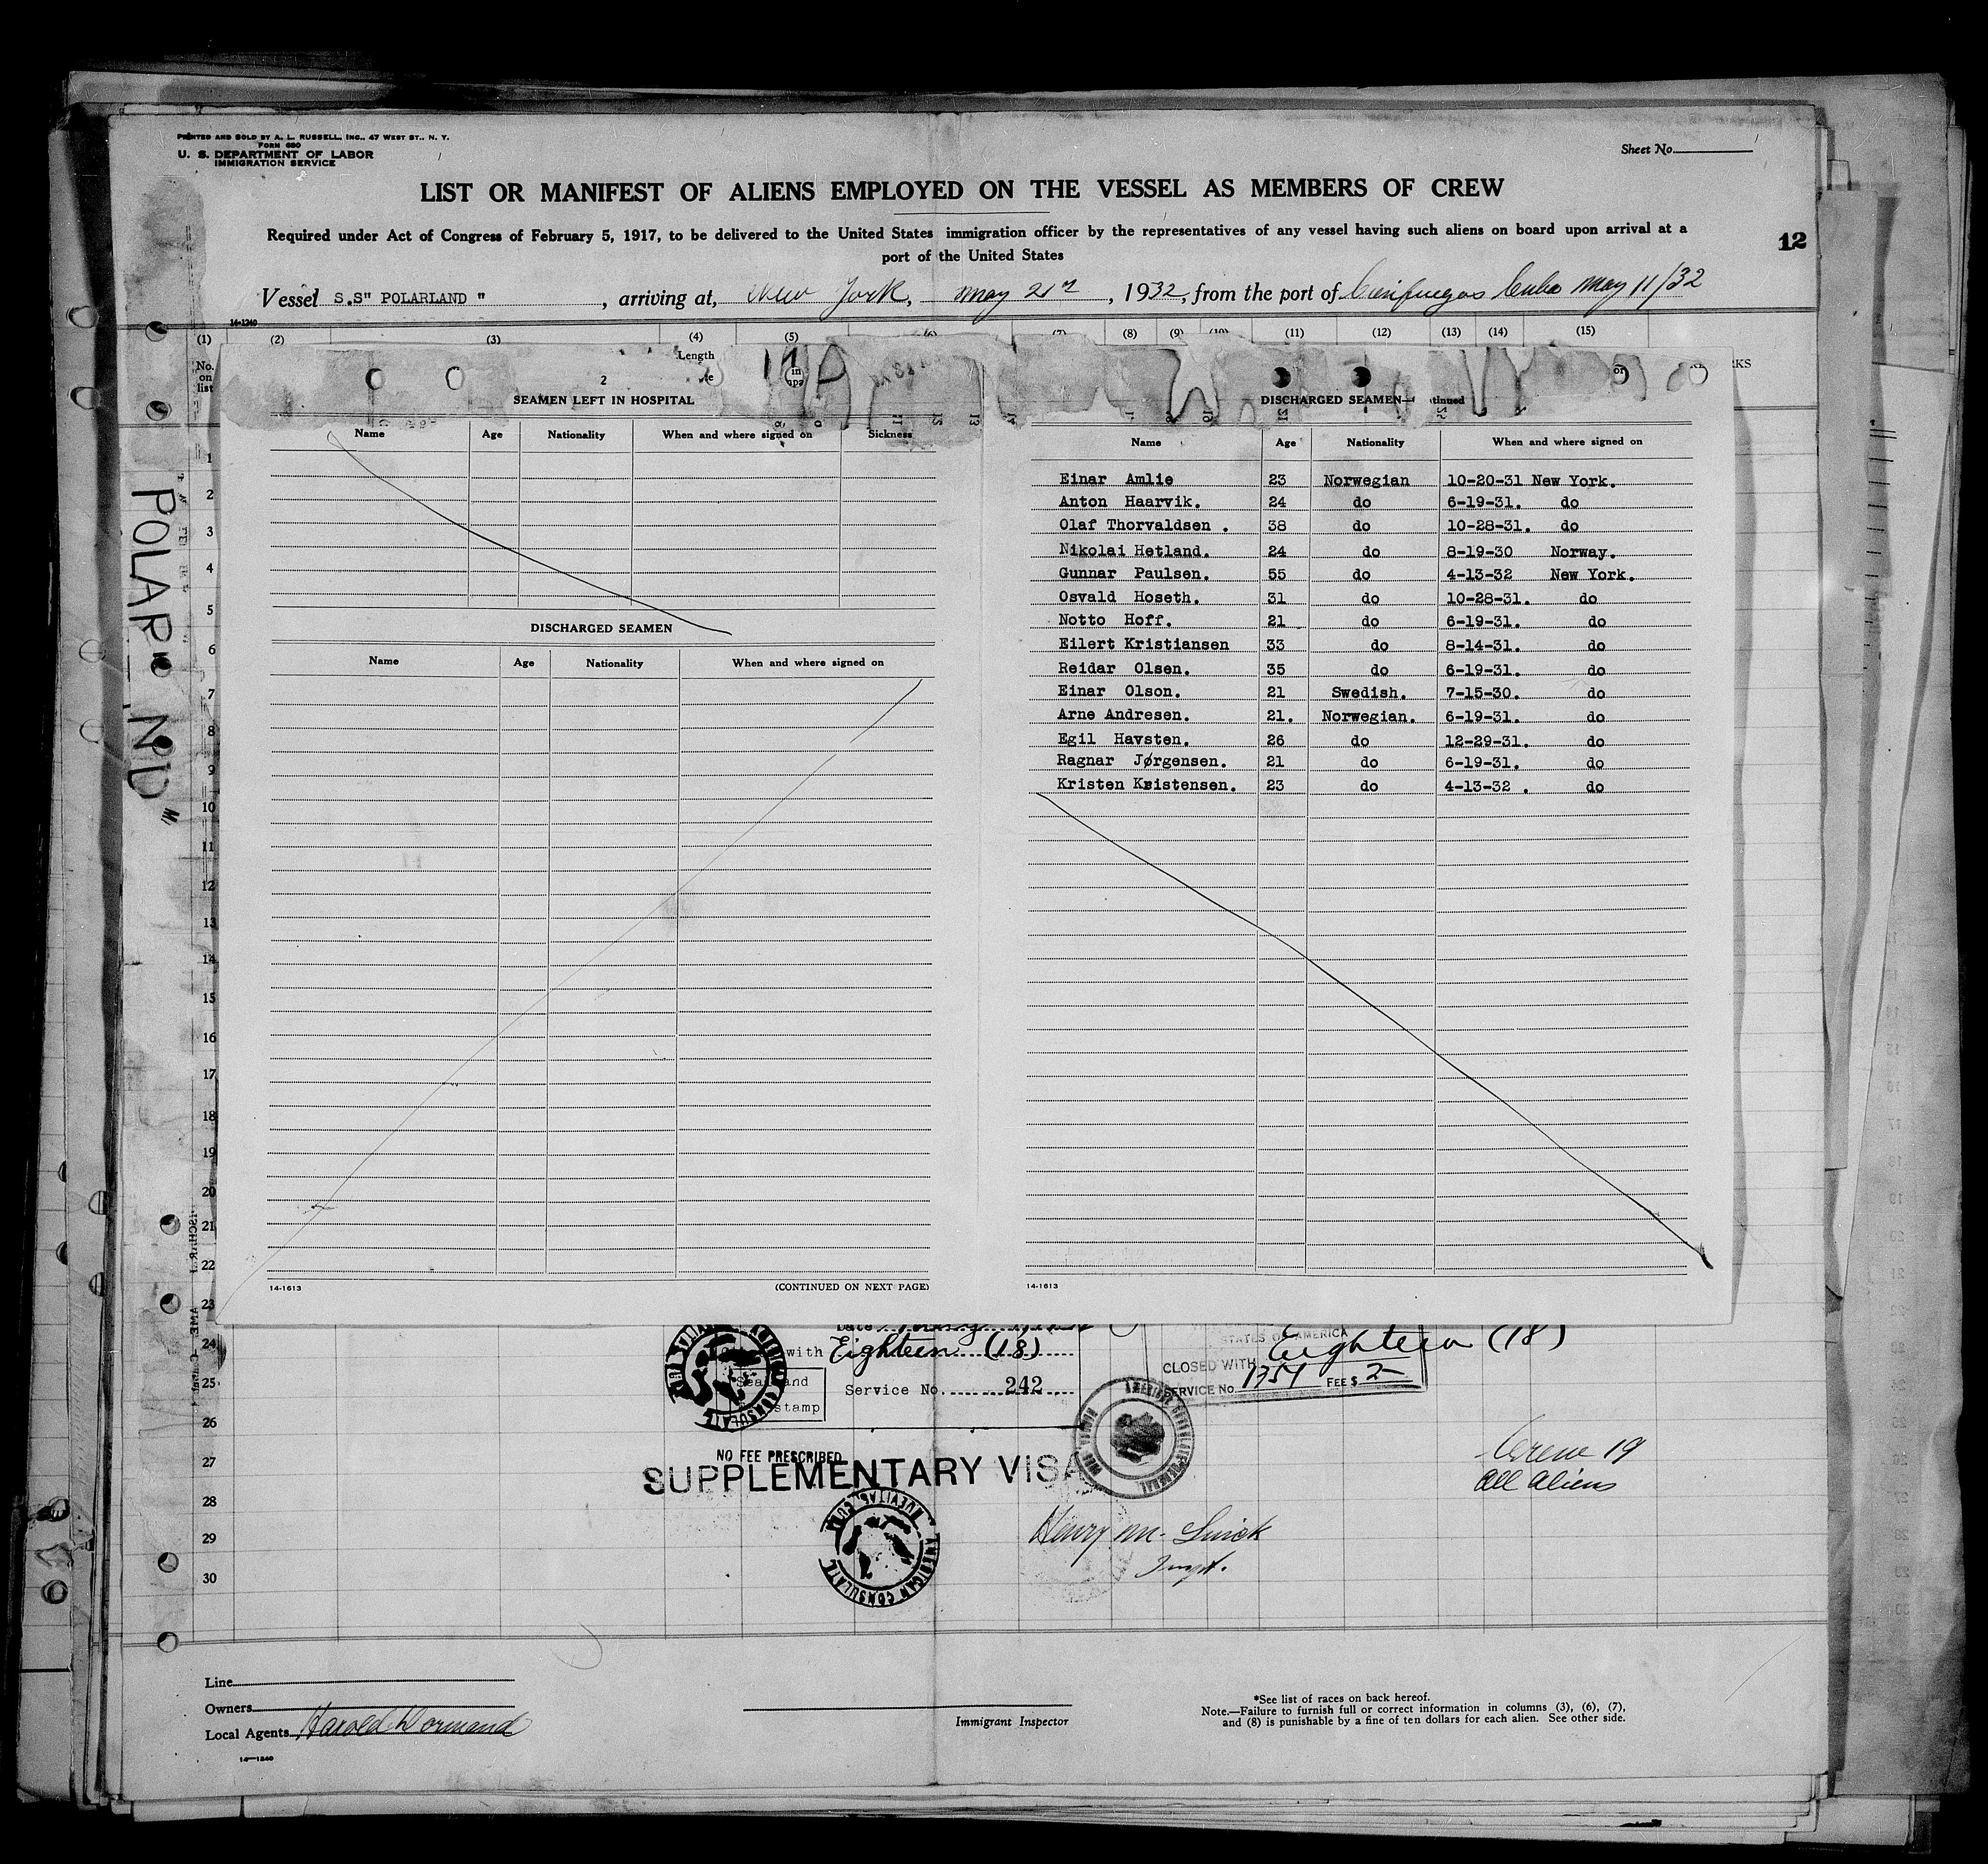 PRINTED AND SOLD BY A. L. RUSSELL, INC., 47 WEST ST., N. Y.
FORM 680
U. S. DEPARTMENT OF LABOR
IMMIGRATION SERVICE
Sheet No.
LIST OR MANIFEST OF ALIENS EMPLOYED ON THE VESSEL AS MEMBERS OF CREW
Required under Act of Congress of February 5, 1917, to be delivered to the United States immigration officer by the representatives of any vessel having such aliens on board upon arrival at a
port of the United States
12
Vessel S.S" POLARLAND ", arriving at, New York, May 21st, 1932, from the port of Cienfuegos Cuba May 11/32
14-1240
(1) (2) (3) (4) (5) (8) (9) (11) (12) (13) (14) (15)
No. on list
Length
SEAMEN LEFT IN HOSPITAL
Name Age Nationality When and where signed on Sickness
DISCHARGED SEAMEN
Name Age Nationality When and where signed on
14-1613 (CONTINUED ON NEXT PAGE)
DISCHARGED SEAMEN—
Name Age Nationality When and where signed on
Einar Amlie 23 Norwegian 10-20-31 New York.
Anton Haarvik. 24 do 6-19-31. do
Olaf Thorvaldsen . 38 do 10-28-31. do
Nikolai Hetland. 24 do 8-19-30 Norway.
Gunnar Paulsen. 55 do 4-13-32 New York.
Osvald Hoseth. 31 do 10-28-31. do
Notto Hoff. 21 do 6-19-31. do
Eilert Kristiansen 33 do 8-14-31. do
Reidar Olsen. 35 do 6-19-31. do
Einar Olson. 21 Swedish. 7-15-30. do
Arne Andresen. 21. Norwegian. 6-19-31. do
Egil Havsten. 26 do 12-29-31. do
Ragnar Jørgensen. 21 do 6-19-31. do
Kristen Kristensen. 23 do 4-13-32 . do
14-1613
1
2
3
4
5
6
7
8
9
10
11
12
13
14
15
16
17
18
19
20
21
22
23
24
25
26
27
28
29
30
with Eighteen (18)
Seal and
stamp
Service No. 242
STATES OF AMERICA
Eighteen (18)
CLOSED WITH
SERVICE No. 1754 FEE $ 2-
NO FEE PRESCRIBED
SUPPLEMENTARY VISA
AMERICAN CONSULATE
NUEVITAS, CUBA
Crew 19
All aliens
Henry M.
Inspt.
Line
Owners
Local Agents Harold Dormand
14—1240
Immigrant Inspector
*See list of races on back hereof.
Note.—Failure to furnish full or correct information in columns (3), (6), (7),
and (8) is punishable by a fine of ten dollars for each alien. See other side.